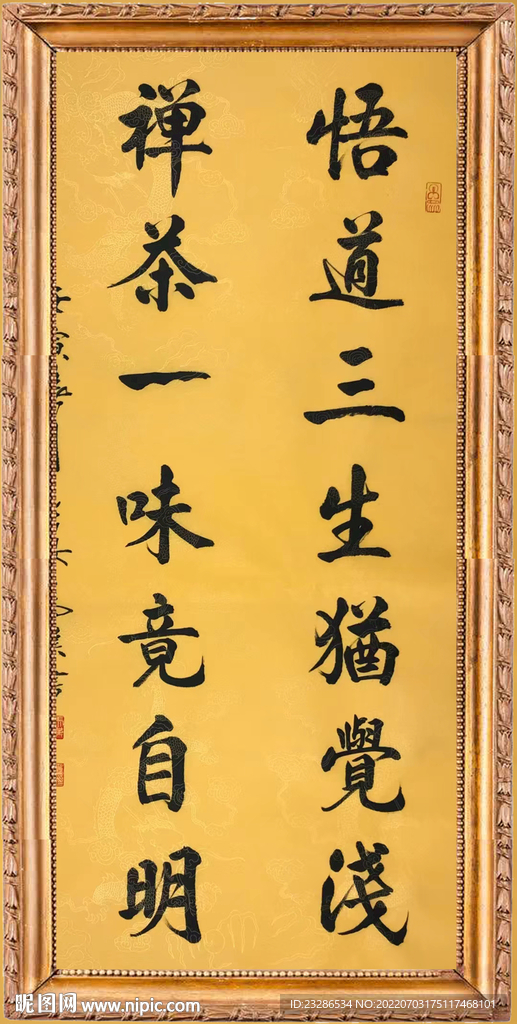 悟道三生猶覺淺
禅茶一味竟自明
昵图网 www.nipic.com
ID:23286534 NO:20220703175117468101